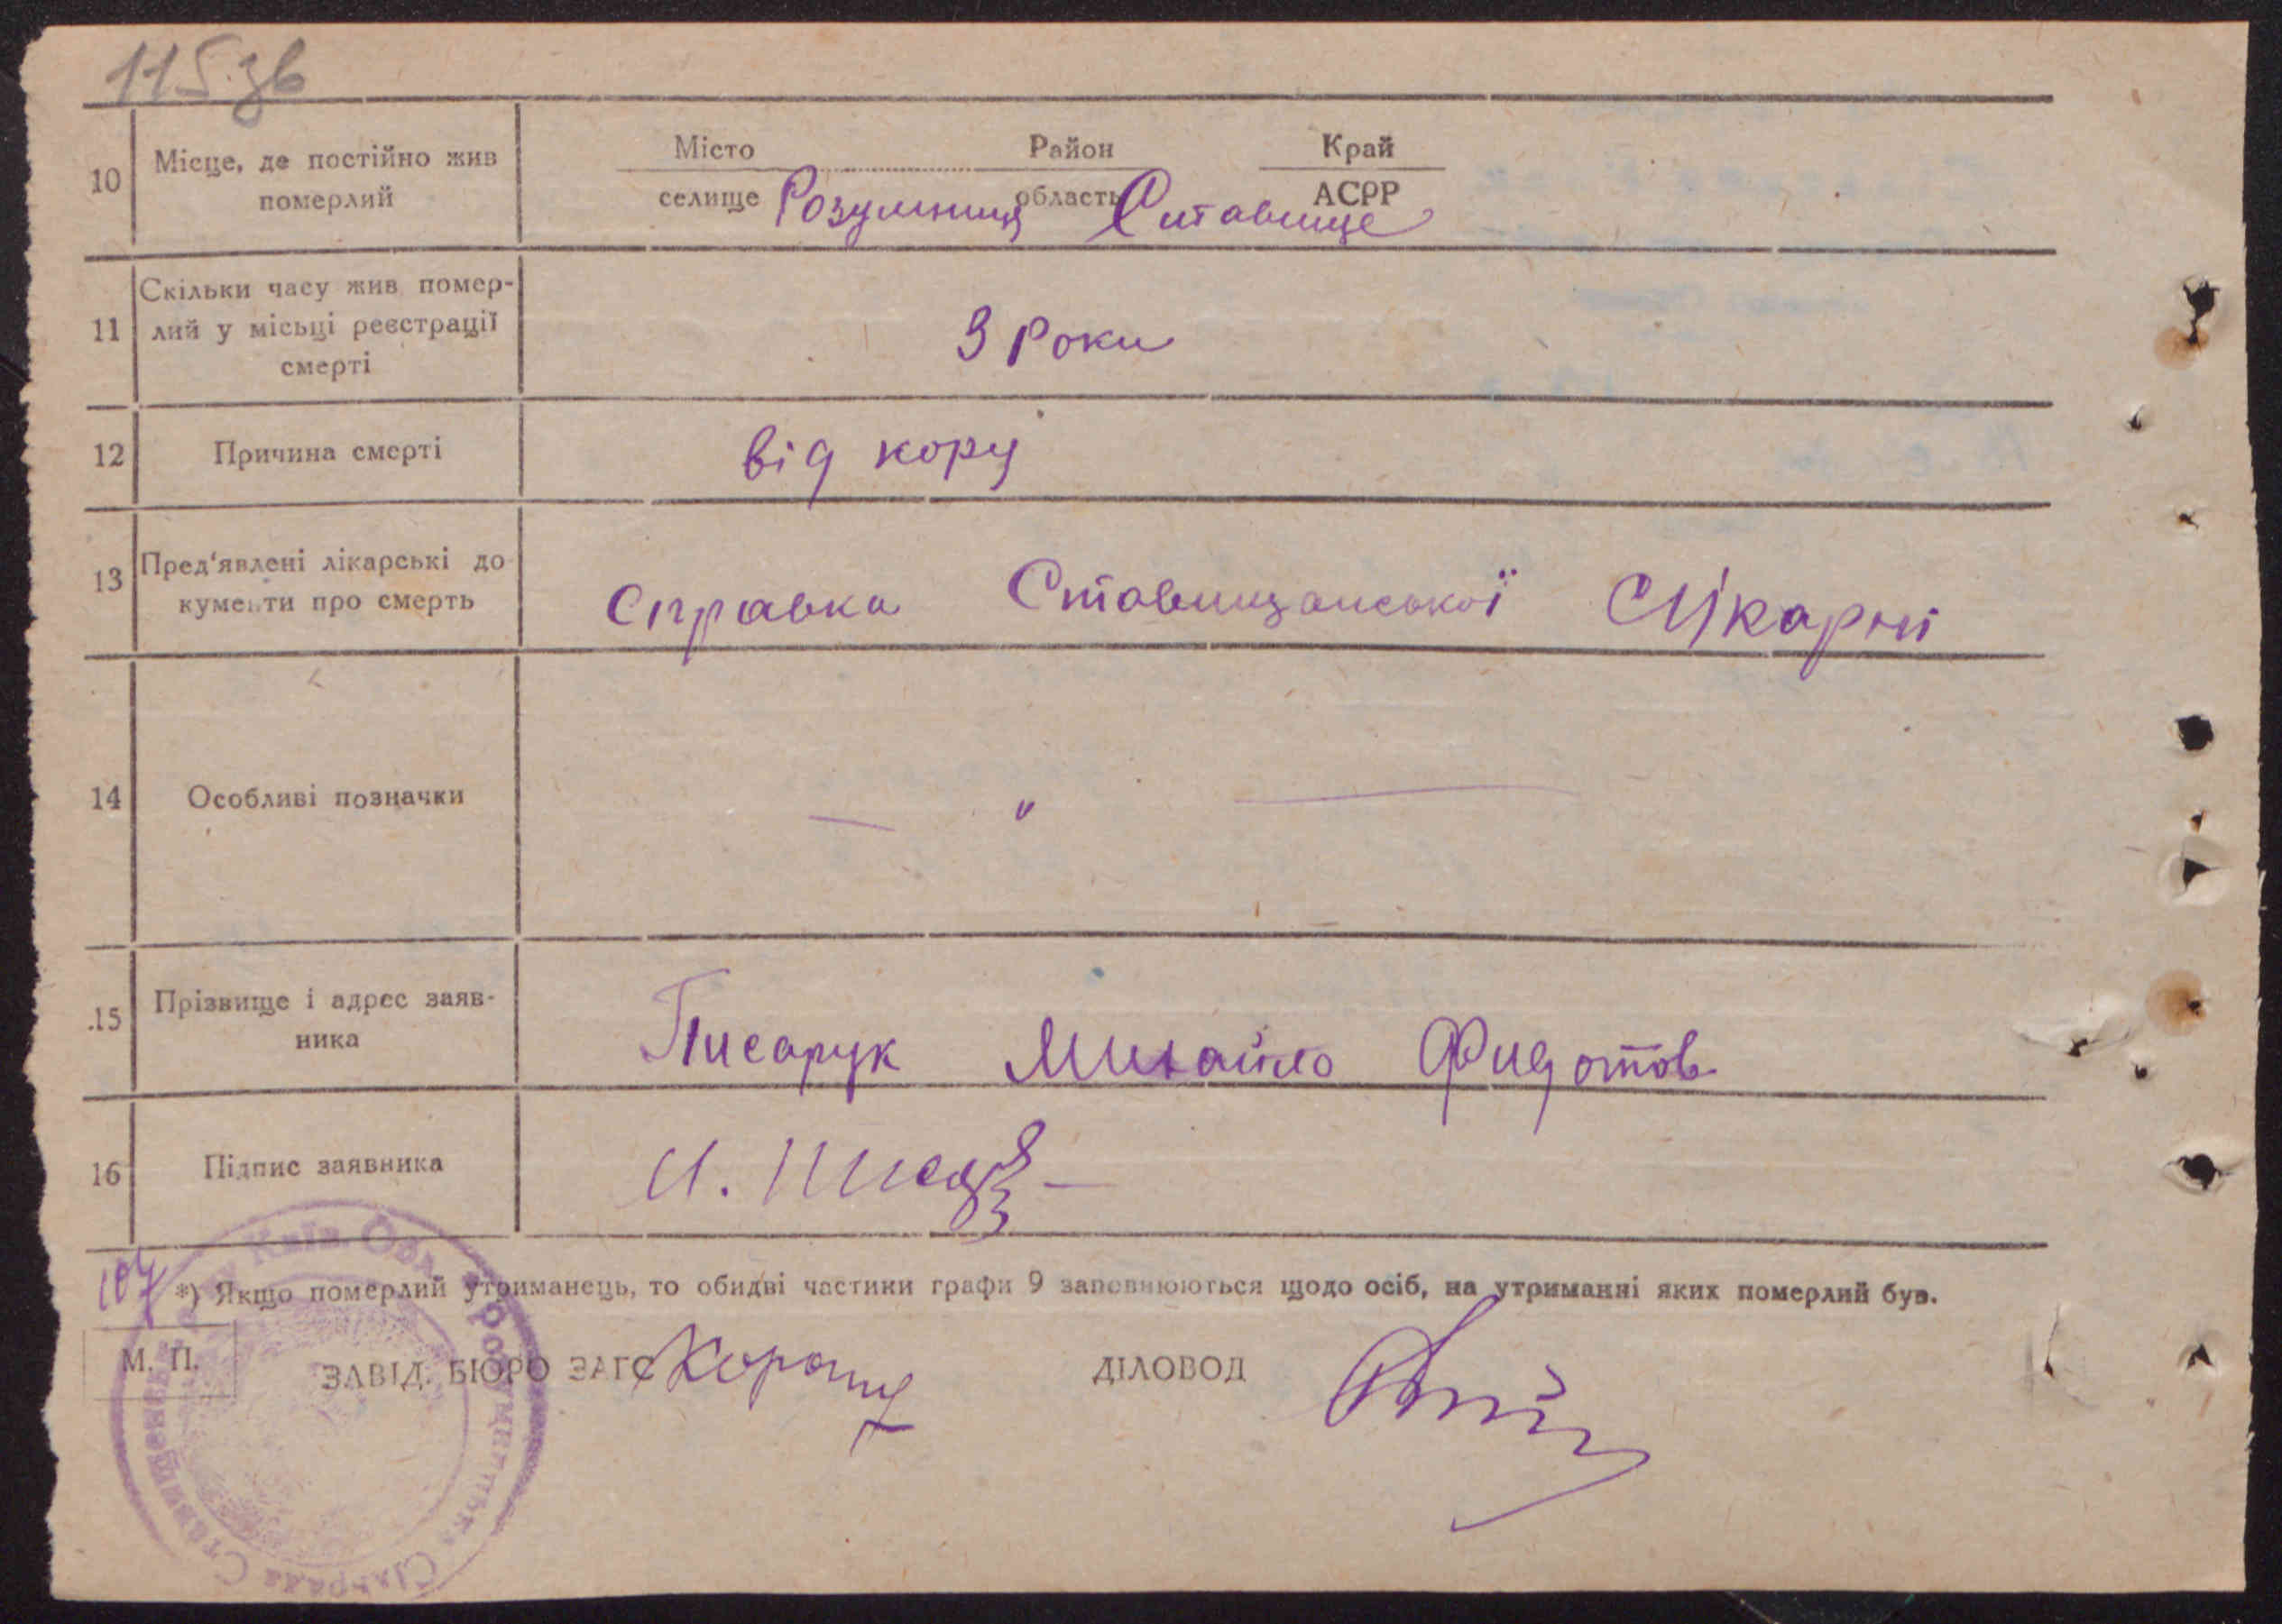 115зв
10 Місце, де постійно жив померлий
Місто Район Край
селище Розумниця область Ставище АСРР
11 Скільки часу жив помер-
лий у місьці реєстрації
смерті
3 Роки
12 Причина смерті
від кору
13 Пред'явлені лікарські до
кументи про смерть
Справка Ставищанської Лікарні
14 Особливі позначки
— " —
15 Прізвище і адрес заяв-
ника
Писарук Михайло Фидотов
16 Підпис заявника
107
*) Якщо померлий утриманець, то обидві частини графи 9 заповнюються щодо осіб, на утриманні яких померлий був.
М. П. ЗАВІД. БЮРО ЗАГС ДІЛОВОД
Київ. Обл. Сільрада